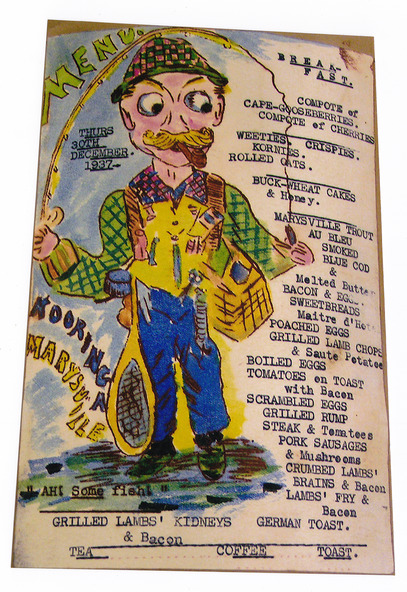 MENU
THURS
30TH
DECEMBER.
1937-
KOORINGA
MARYSVILLE
"AH! Some fish! "
BREAK-
FAST.
COMPOTE of
CAPE-GOOSEBERRIES.
COMPOTE of CHERRIES
WEETIES. CRISPIES.
KORNIES.
ROLLED OATS.
BUCK-WHEAT CAKES
& Honey.
MARYSVILLE TROUT
AU BLEU
SMOKED
BLUE COD
&
Melted Butter
BACON & EGGS.
SWEETBREADS
Maitre d'Hot
POACHED EGGS
GRILLED LAMB CHOPS
& Saute Potatoe
BOILED EGGS
TOMATOES on TOAST
with Bacon
SCRAMBLED EGGS
GRILLED RUMP
STEAK & Tomatees
PORK SAUSAGES
& Mushrooms
CRUMBED LAMBS'
BRAINS & Bacon
LAMBS' FRY &
Bacon
GRILLED LAMBS' KIDNEYS
& Bacon
GERMAN TOAST.
TEA COFFEE TOAST.